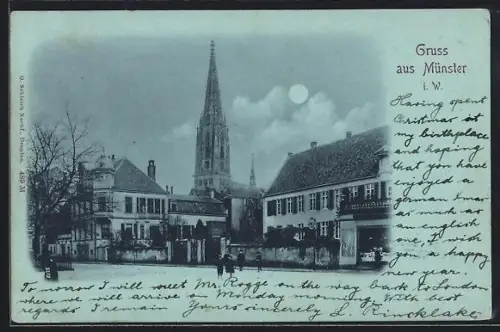 Gruss
aus Münster
i. W.
Having spent
Christmas at
my birthplace
and hoping
that you have
enjoyed a
german Xmas
as much as
an english
one, I wish
you a happy
new year.
To morrow I will meet Mr. Rogge on the way back to London
where we will arrive on Monday morning. With best
regards I remain Yours sincerely L. Rincklake
Dresden. 489 M